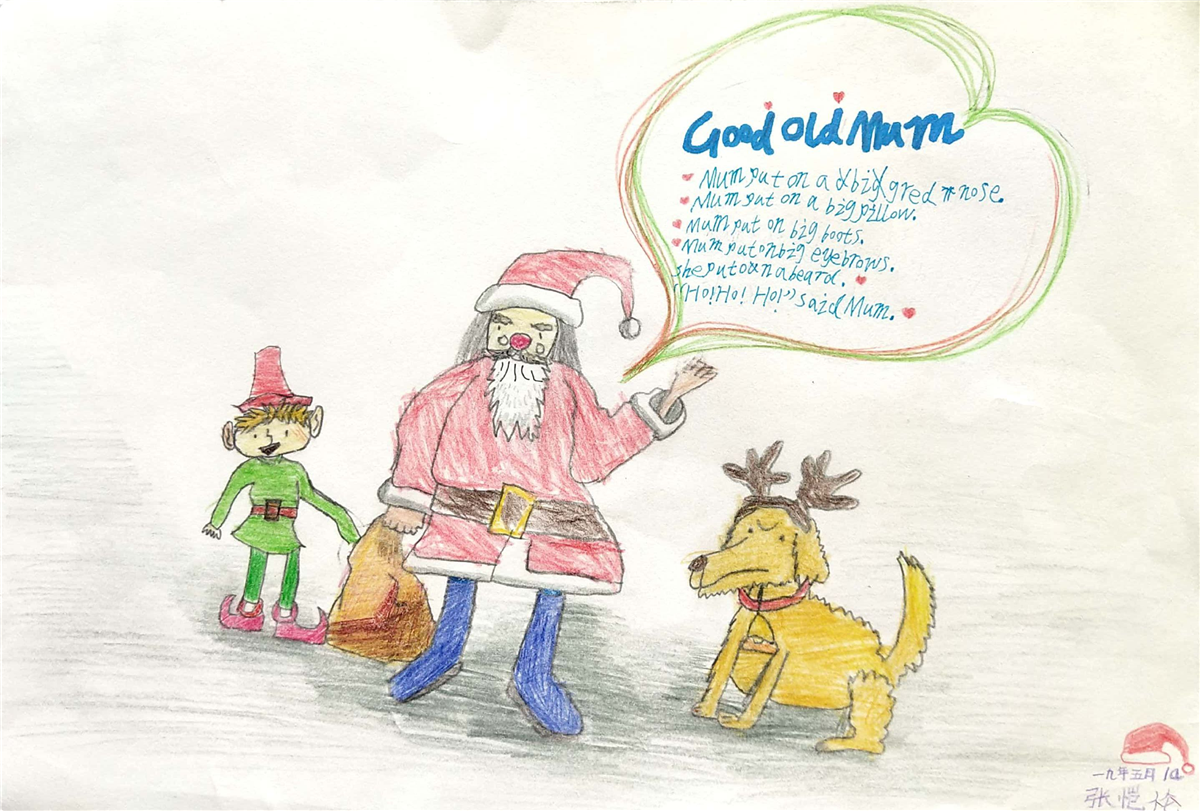 Good old Mum
Mum put on a big red nose.
Mum put on a big pillow.
Mum put on big boots.
Mum put on big eyebrows.
she put on a beard.
"Ho! Ho! Ho!" said Mum.
一九年五月 14
张恺